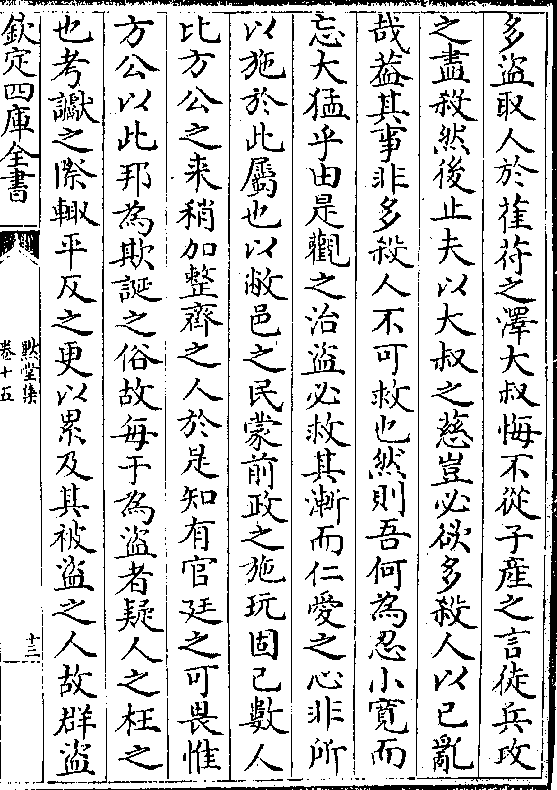 多盜取人於萑苻之澤大叔悔不從子產之言徒兵攻
之盡殺然後止夫以大叔之慈豈必欲多殺人以已亂
哉葢其事非多殺人不可救也然則吾何為忍小寛而
忘大猛乎由是觀之治盜必救其漸而仁愛之心非所
以施於此屬也以敝邑之民蒙前政之施玩固已數人
比方公之来稍加整齊之人於是知有官廷之可畏惟
方公以此邦為欺誕之俗故每于為盜者疑人之枉之
也考讞之際輙平反之更以累及其被盜之人故群盜
欽定四庫全書
默堂集
卷十五
十三